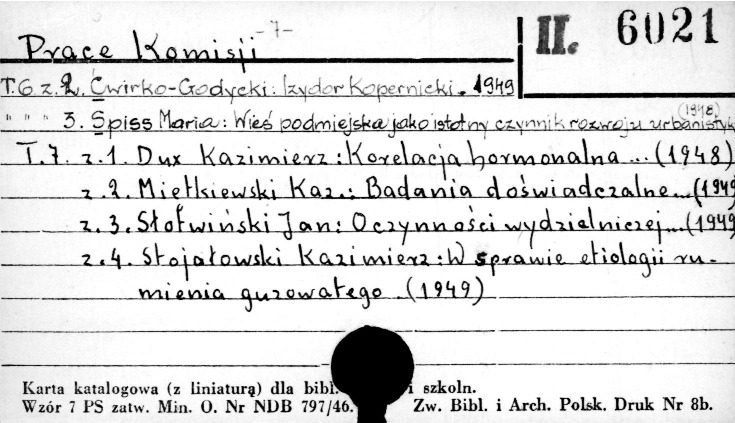 Prace Komisji -7- II. 6021
T.6 z. 2. Ćwirko-Godycki: Izydor Kopernicki. 1949
" " " 3. Spiss Maria: Wieś podmiejska jako istotny czynnik rozwoju urbanistyk (1948)
T.7. z.1. Dux Kazimierz: Korelacja hormonalna... (1948)
z.2. Miętkiewski Kaz.: Badania doświadczalne... (1949
z.3. Stotwiński Jan: O czynności wydzielniczej... (1949
z.4. Stojałowski Kazimierz: W sprawie etiologii ru-
mienia guzowatego. (1949)
Karta katalogowa (z liniaturą) dla bibl. i szkoln.
Wzór 7 PS zatw. Min. O. Nr NDB 797/46. Zw. Bibl. i Arch. Polsk. Druk Nr 8b.